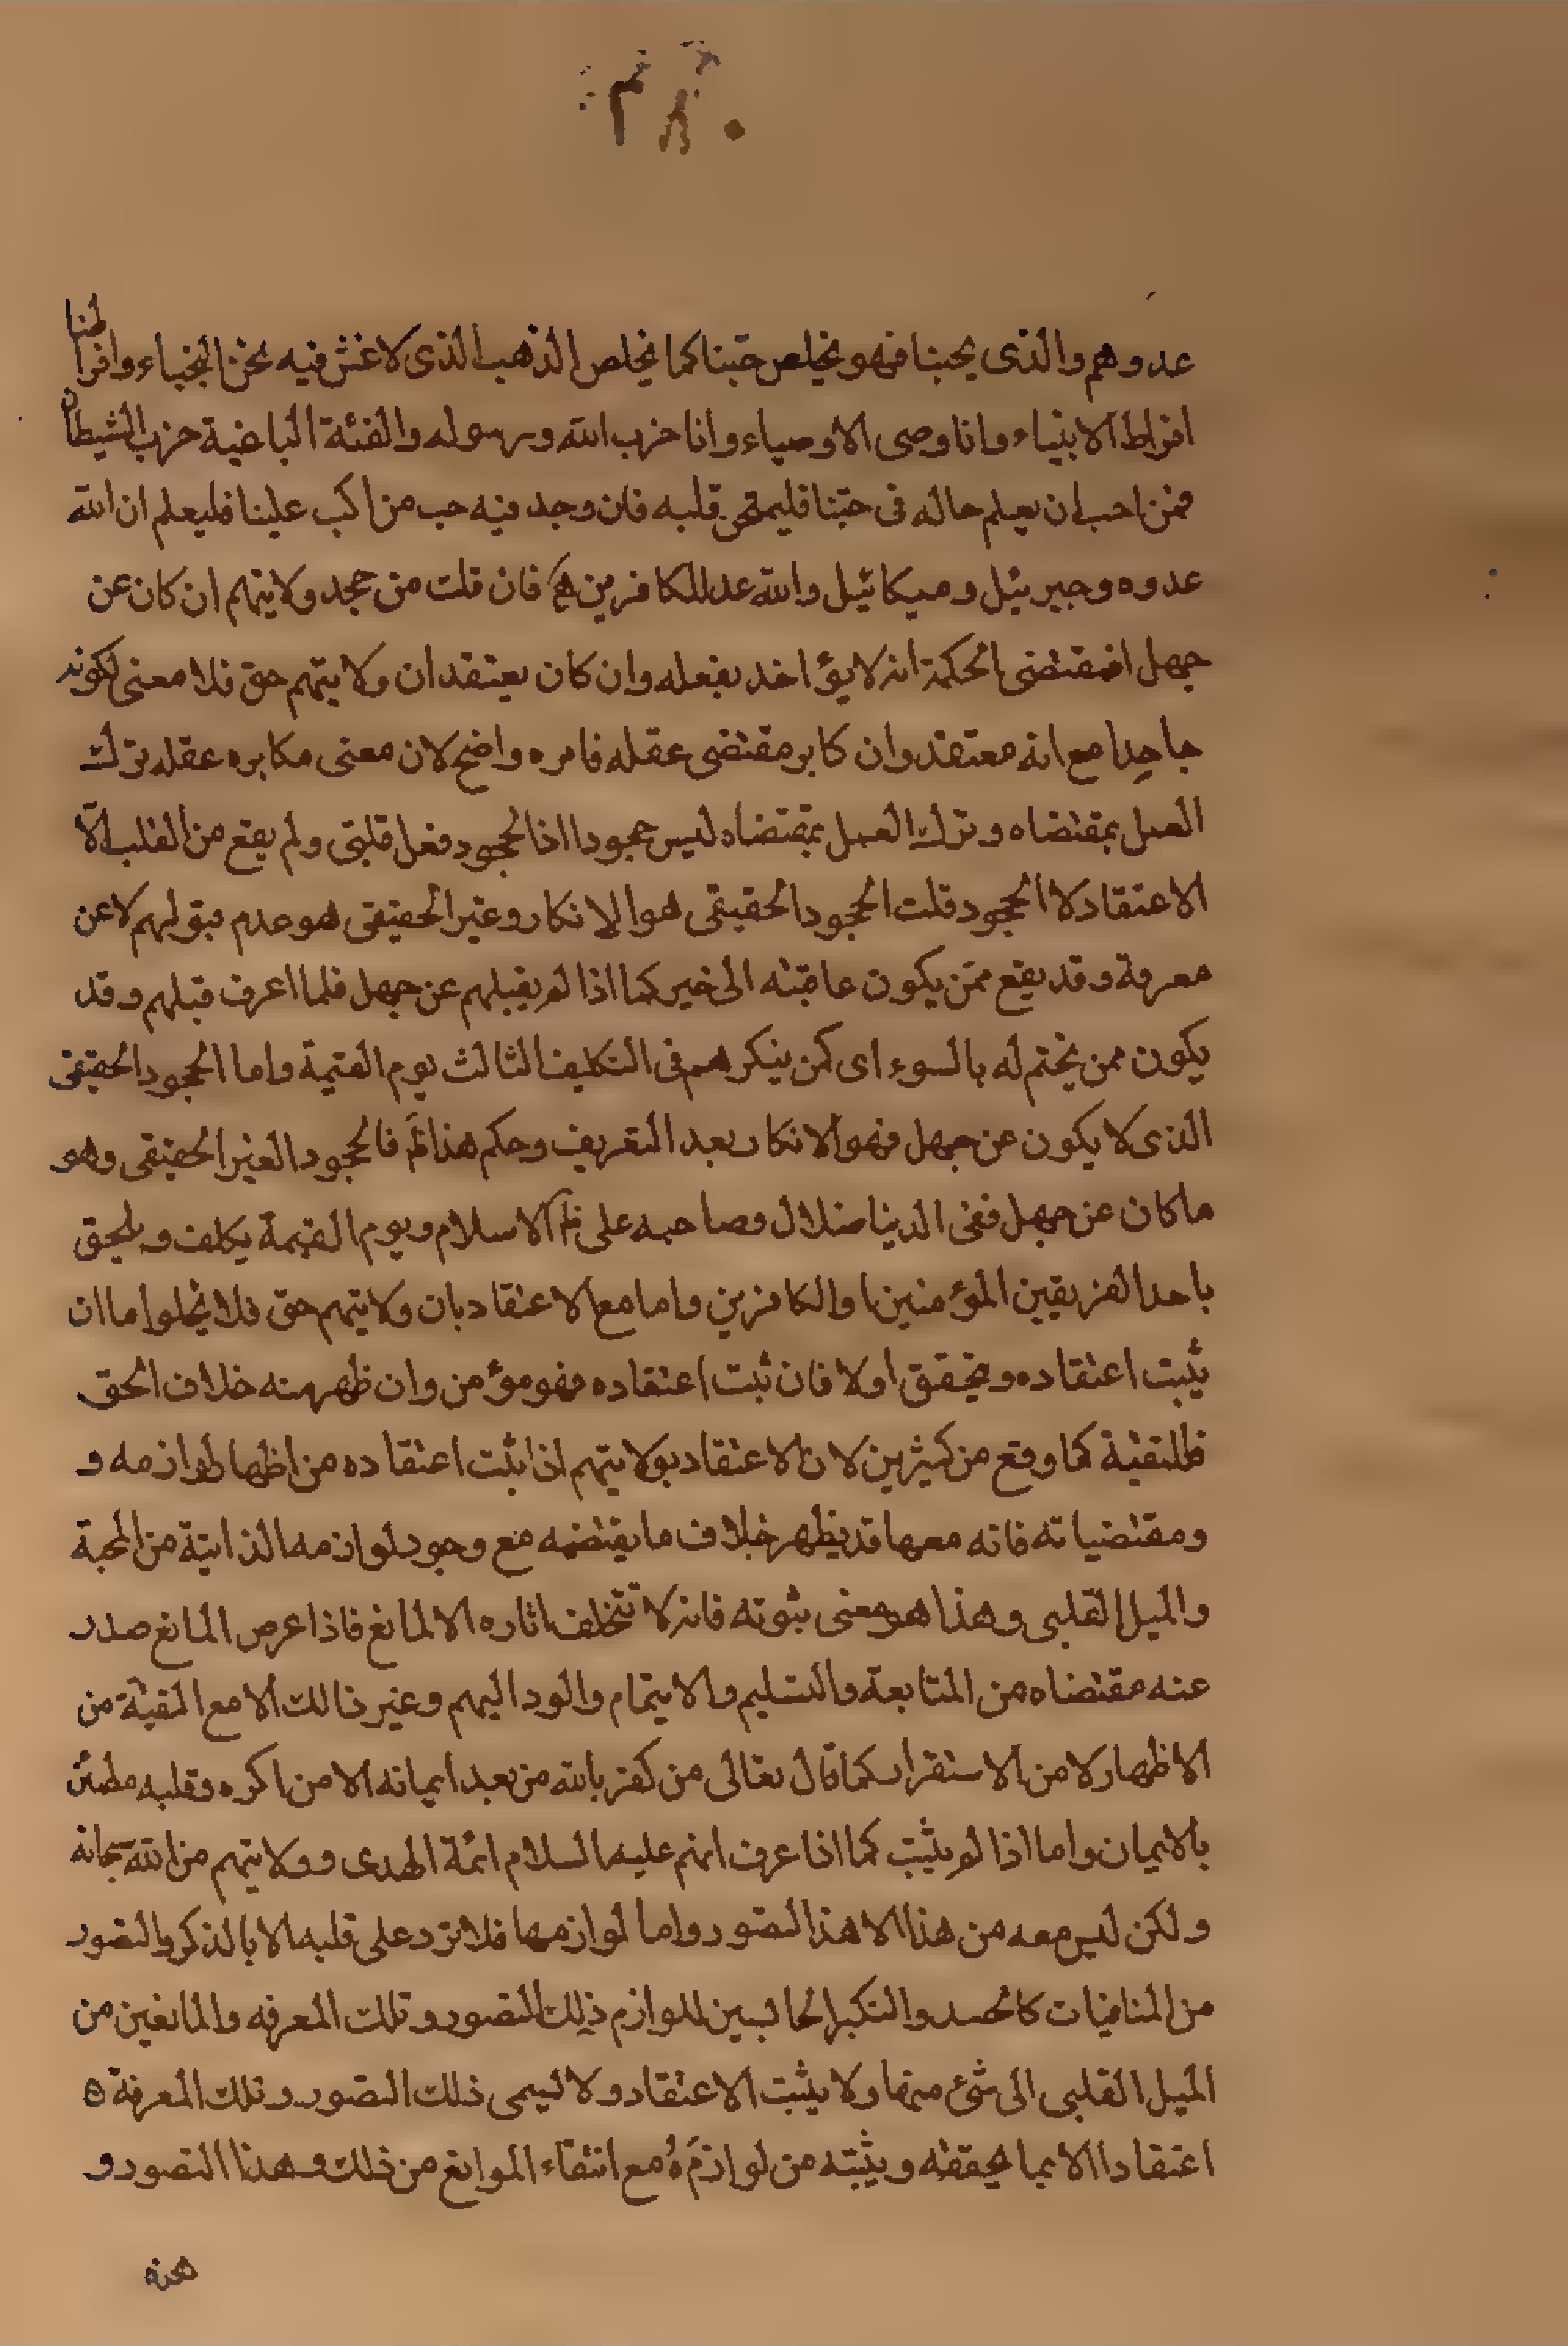 عدوهم والذى يحبنا فهو يخلص حبّنا كما يخلص الذهب الذى لا غش فيه نحن النجباء وافراطنا
افراط الانبياء وانا وصى الاوصياء وانا حزب الله ورسوله والفئة الباغية حزب الشيطان
فمن احب ان يعلم حاله فى حبّنا فليمتحن قلبه فان وجد فيه حب من اكب علينا فليعلم ان الله
عدوه وجبرئيل وميكائيل والله عد للكافرين فان قلت من جحد ولايتهم ان كان عن
جهل فمقتضى الحكمة انه لا يؤاخذ بفعله وان كان يعتقد ان ولايتهم حق فلا معنى لكونه
جاحدا مع انه معتقد وان كابر مقتضى عقله فامره واضح لان معنى مكابره عقله ترك
العمل بمقتضاه وترك العمل بمقتضاه ليس جحودا اذ الجحود فعل قلبتى ولم يقع من القلب الّا
الاعتقاد لا الجحود قلت الجحود الحقيقى هو الانكار وغير الحقيقى هو عدم قبولهم لا عن
معرفة وقد يقع ممّن يكون عاقبته الى خير كما اذا لم يقبلهم عن جهل فلما اعرف قبلهم وقد
يكون ممن يختم له بالسوء اى كمن ينكرهم فى التكليف الثالث يوم القيمة واما الجحود الحقيقى
الذى لا يكون عن جهل فهو الانكار بعد التعريف وحكم هذا فالجحود الغير الحقيقى وهو
ما كان عن جهل ففى الدنيا ضلال وصاحبه على الاسلام ويوم القيمة يكلف ويلحق
باحد الفريقين المؤمنين او الكافرين واما مع الاعتقاد بان ولايتهم حق فلا يخلوا اما ان
يثبت اعتقاده ويتحقق اولا فان ثبت اعتقاده فهو مؤمن وان ظهر منه خلاف الحق
فللتقية كما وقع من كثيرين لان الاعتقاد بولايتهم اذا ثبت اعتقاده من اظهار لوازمه و
ومقتضياته فانه معها قد يظهر خلاف ما يقتضيه مع وجود لوازمه الذاتية من المحبة
والميل القلبى وهذا هو معنى ثبوته فانه لا تتخلف اثاره الا لمانع فاذا عرض المانع صدر
عنه مقتضاه من المتابعة والتسليم والايتمام والود اليهم وغير ذالك الا مع التقية من
الاظهار لا من الاستقرار كما قال تعالى من كفر بالله من بعد ايمانه الا من اكره وقلبه مطمئن
بالايمان واما اذا لم يثبت كما اذا عرف انهم عليهم السلام ائمة الهدى وولايتهم من الله سبحانه
ولكن ليس معه من هذا الا هذا التصور واما لوازمها فلا ترد على قلبه الا بالذكر والتصور
من المنافيات كالحسد والتكبر الحاجبين للوازم ذلك التصور وتلك المعرفه والمانعين من
الميل القلبى الى شئ منها ولا يثبت الاعتقاد ولا ليسمى ذلك التصور وتلك المعرفة
اعتقادا الا بما يحققه ويثبته من لوازمه مع انتفاء الموانع من ذلك وهذا التصور و